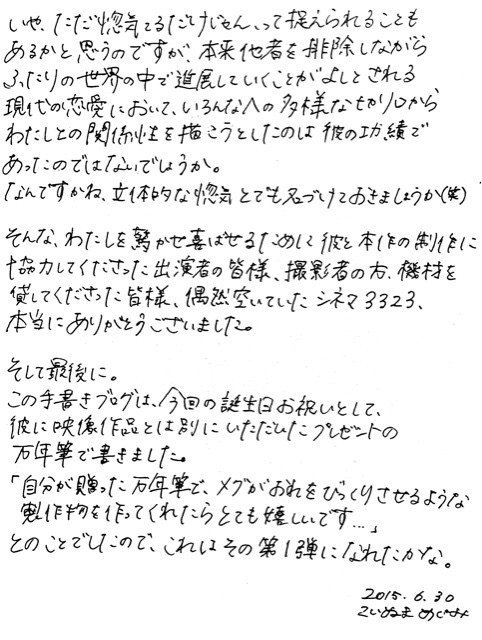 いや、ただ惚気てるだけじゃん、って捉えられることも
あるかと思うのですが、本来他者を排除しながら
ふたりの世界の中で進展していくことがよしとされる
現代の恋愛において、いろんな人の多様な切り口から
わたしとの関係性を描こうとしたのは彼の功績で
あったのではないでしょうか。
なんですかね、立体的な惚気とでも名づけておきましょうか(笑)
そんな、わたしを驚かせ喜ばせるために彼と本作の制作に
協力してくださった出演者の皆様、撮影者の方、機材を
貸してくださった皆様、偶然空いていたシネマ3323、
本当にありがとうございました。
そして最後に。
この手書きブログは、今回の誕生日お祝いとして、
彼に映像作品とは別にいただいたプレゼントの
万年筆で書きました。
「自分が贈った万年筆で、メグがおれをびっくりさせるような
製作物を作ってくれたらとても嬉しいです…」
とのことでしたので、これはその第1弾になれたかな。
2015.6.30
こいぬま めぐみ